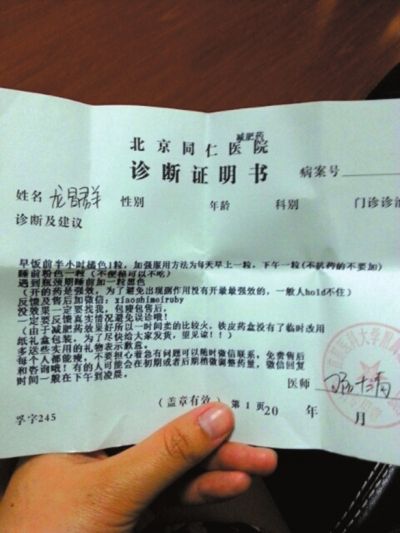 减肥药
北京同仁医院
诊断证明书
病案号
姓名 性别 年龄 科别 门诊诊治
诊断及建议
早饭前半小时橘色1粒,加强服用方法为每天早上一粒,下午一粒(不趴药的不要加)
睡前粉色一粒(不便秘可以不吃)
遇到瓶颈期睡前加一粒黑色
(开的药是强效,为了避免出现副作用没有开最最强效的,一般人hold不住)
反馈及售后加微信:xiaoshimeiruby
没效果一定要找我,包瘦包售后,
一定要反馈真实情况避免误诊哦!
(由于减肥药效果好所以一时间卖的比较火,铁皮药盒没有了临时改用
纸礼盒包装,为了尽快给大家发货,望见谅!!)
多送些实用的礼物表示歉意。
每个人都能瘦,不要担心着急有问题可以随时微信联系,免费售后
和咨询哦!有的人可能会在初期或者后期稍微调整药量,微信回复
时间一般在下午到凌晨。
医师
(盖章有效) 第1页 20 年 月
孚字245